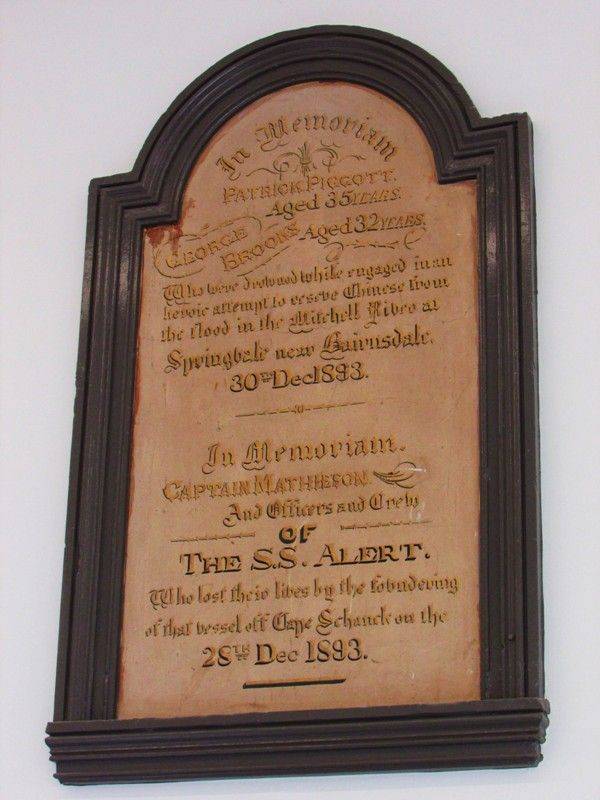 In Memoriam
PATRICK PIGGOTT.
Aged 35 YEARS.
GEORGE
BROOKS Aged 32 YEARS.
Who were drowned while engaged in an
heroic attempt to rescue Chinese from
the flood in the Mitchell River at
Springvale near Bairnsdale.
30TH Dec 1893.
In Memoriam.
CAPTAIN MATHIESON.
And Officers and Crew
OF
THE S.S. ALERT.
Who lost their lives by the foundering
of that vessel off Cape Schanck on the
28TH Dec 1893.